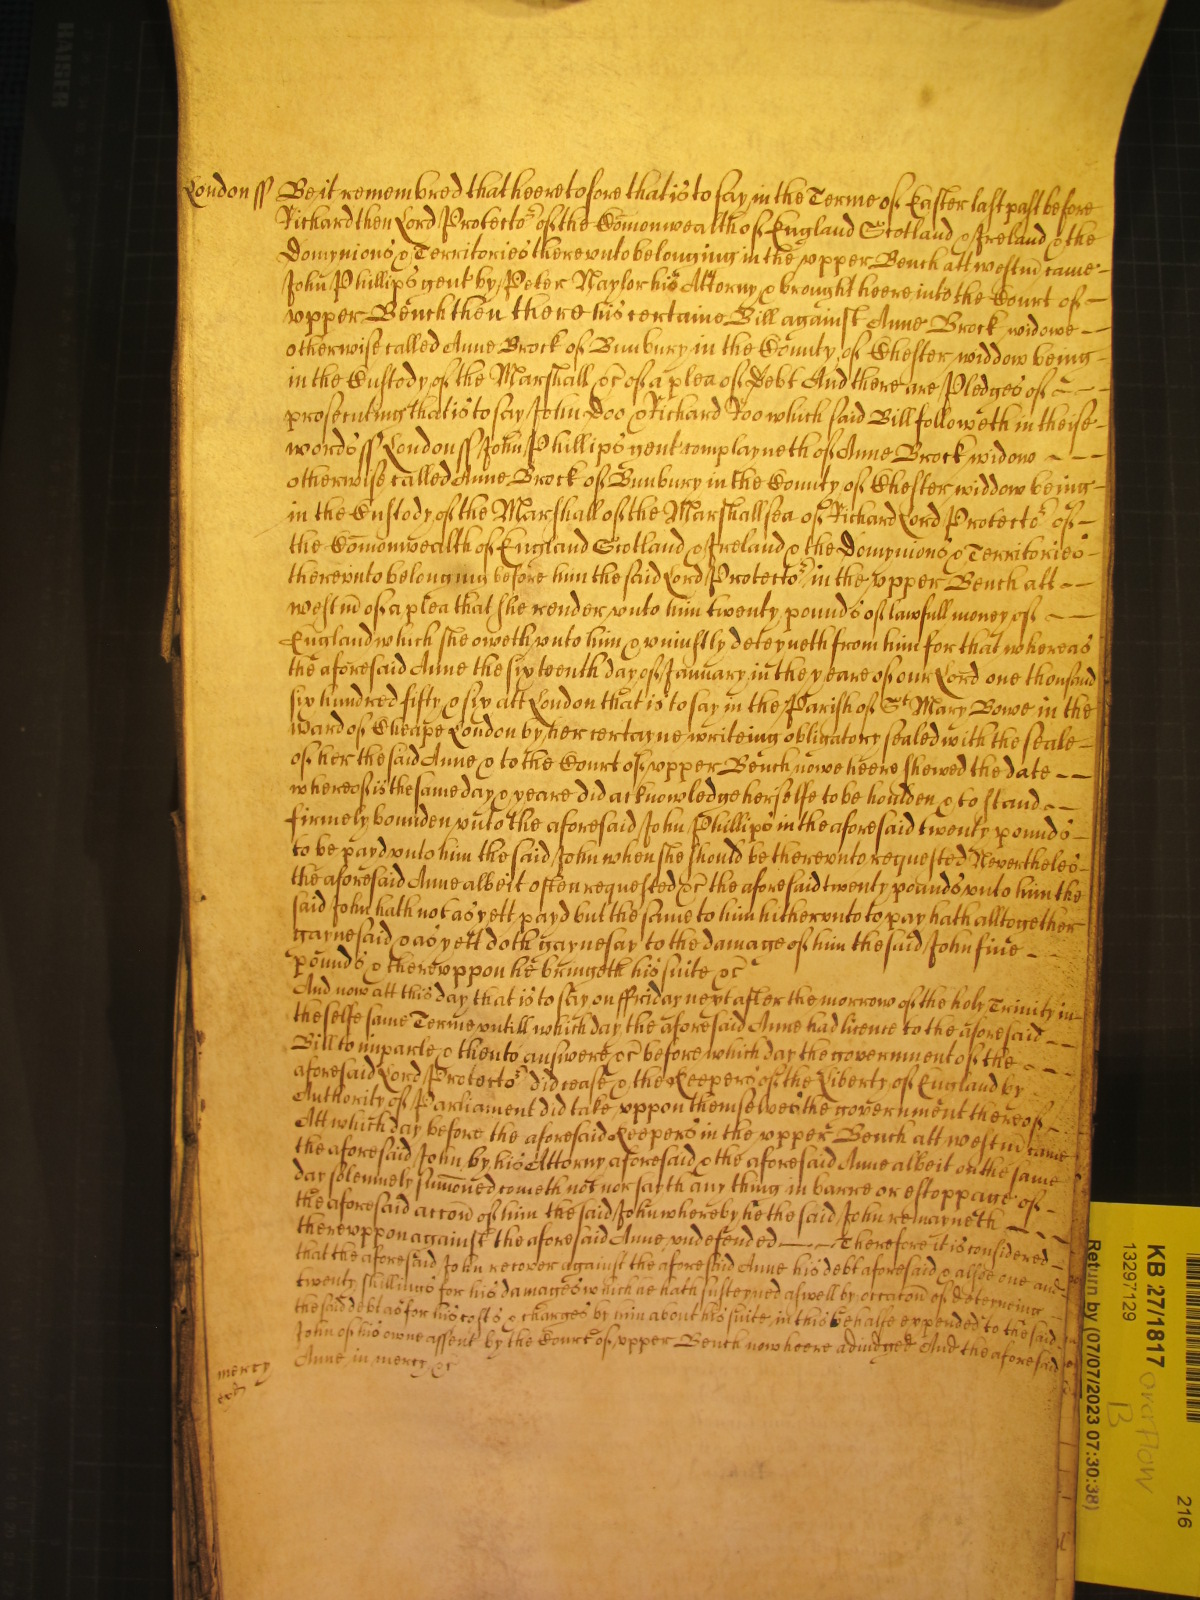 London ss Be it remembred that heeretofore that is to say in the Terme of Easter last past before
Richard then Lord Protector of the Comonwealth of England Scotland & Ireland & the
Domynions & Territories therevnto belonging in the vpper Bench att westm came
John Phillips gent by Peter Naylor his Attorny & brought heere into the Court of
vpper Bench then there his certaine Bill against Anne Brock widowe
otherwise called Anne Brock of Bunbury in the County of Chester widdow being
in the Custody of the Marshall &c of a plea of Debt And there are Pledges of
prosecuting that is to say John Doo & Richard Roo which said Bill followeth in theise
words ss London ss John Phillips gent complayneth of Anne Brock widow
otherwise called Anne Brock of Bunbury in the County of Chester widdow being
in the Custody of the Marshall of the Marshallsea of Richard Lord Protector of
the Comonwealth of England Scotland & Ireland & the Domynions & Territories
therevnto belonging before him the said Lord Protector in the vpper Bench att
westm of a plea that she render vnto him twenty pounds of lawfull money of
England which she oweth vnto him & vniustly deteyneth from him for that whereas
the aforesaid Anne the sixteenth day of January in the yeare of our Lord one thousand
six hundred fifty & six att London that is to say in the Parish of St Mary Bowe in the
ward of Cheape London by her certayne writeing obligatory sealed with the seale
of her the said Anne & to the Court of vpper Bench nowe heere shewed the date
whereof is the same day & yeare did acknowledge herselfe to be houlden & to stand
firmely bounden vnto the aforesaid John Phillips in the aforesaid twenty pounds
to be payd vnto him the said John when she should be therevnto requested Nevertheles
the aforesaid Anne albeit often requested &c the aforesaid twenty pounds vnto him the
said John hath not as yett payd but the same to him hithervnto to pay hath alltogether
gaynesaid & as yett doth gaynesay to the damage of him the said John fiue
pounds & therevppon he bringeth his suite &c
And now att this day that is to say on ffriday next after the morrow of the holy Trinity in
the selfe same Terme vntill which day the aforesaid Anne had licence to the aforesaid
Bill to imparle & then to answere &c before which day the government of the
aforesaid Lord Protector did cease & the Keepers of the Liberty of England by
Authority of Parliament did take vppon themselves the government thereof
Att which day before the aforesaid Keepers in the vpper Bench att westm came
the aforesaid John by his Attorny aforesaid & the aforesaid Anne albeit on the same
day solemnely sumoned cometh not nor saith any thing in barre or estoppage of
the aforesaid accon of him the said John whereby he the said John remayneth
therevppon against the aforesaid Anne vndefended Therefore it is considered
that the aforesaid John recover against the aforesaid Anne his debt aforesaid & alsoe one and
twenty shillings for his damages which he hath susteyned aswell by occacon of deteyneing
the said debt as for his costs & charges by him about his suite in this behalfe expended to the said
John of his owne assent by the Court of vpper Bench now heere adiudged And the aforesaid
Anne in mercy &c
mercy
HAISER
KB 27/1817
13297129
Return by (07/07/2023 07:30:38)
overflow
B
216